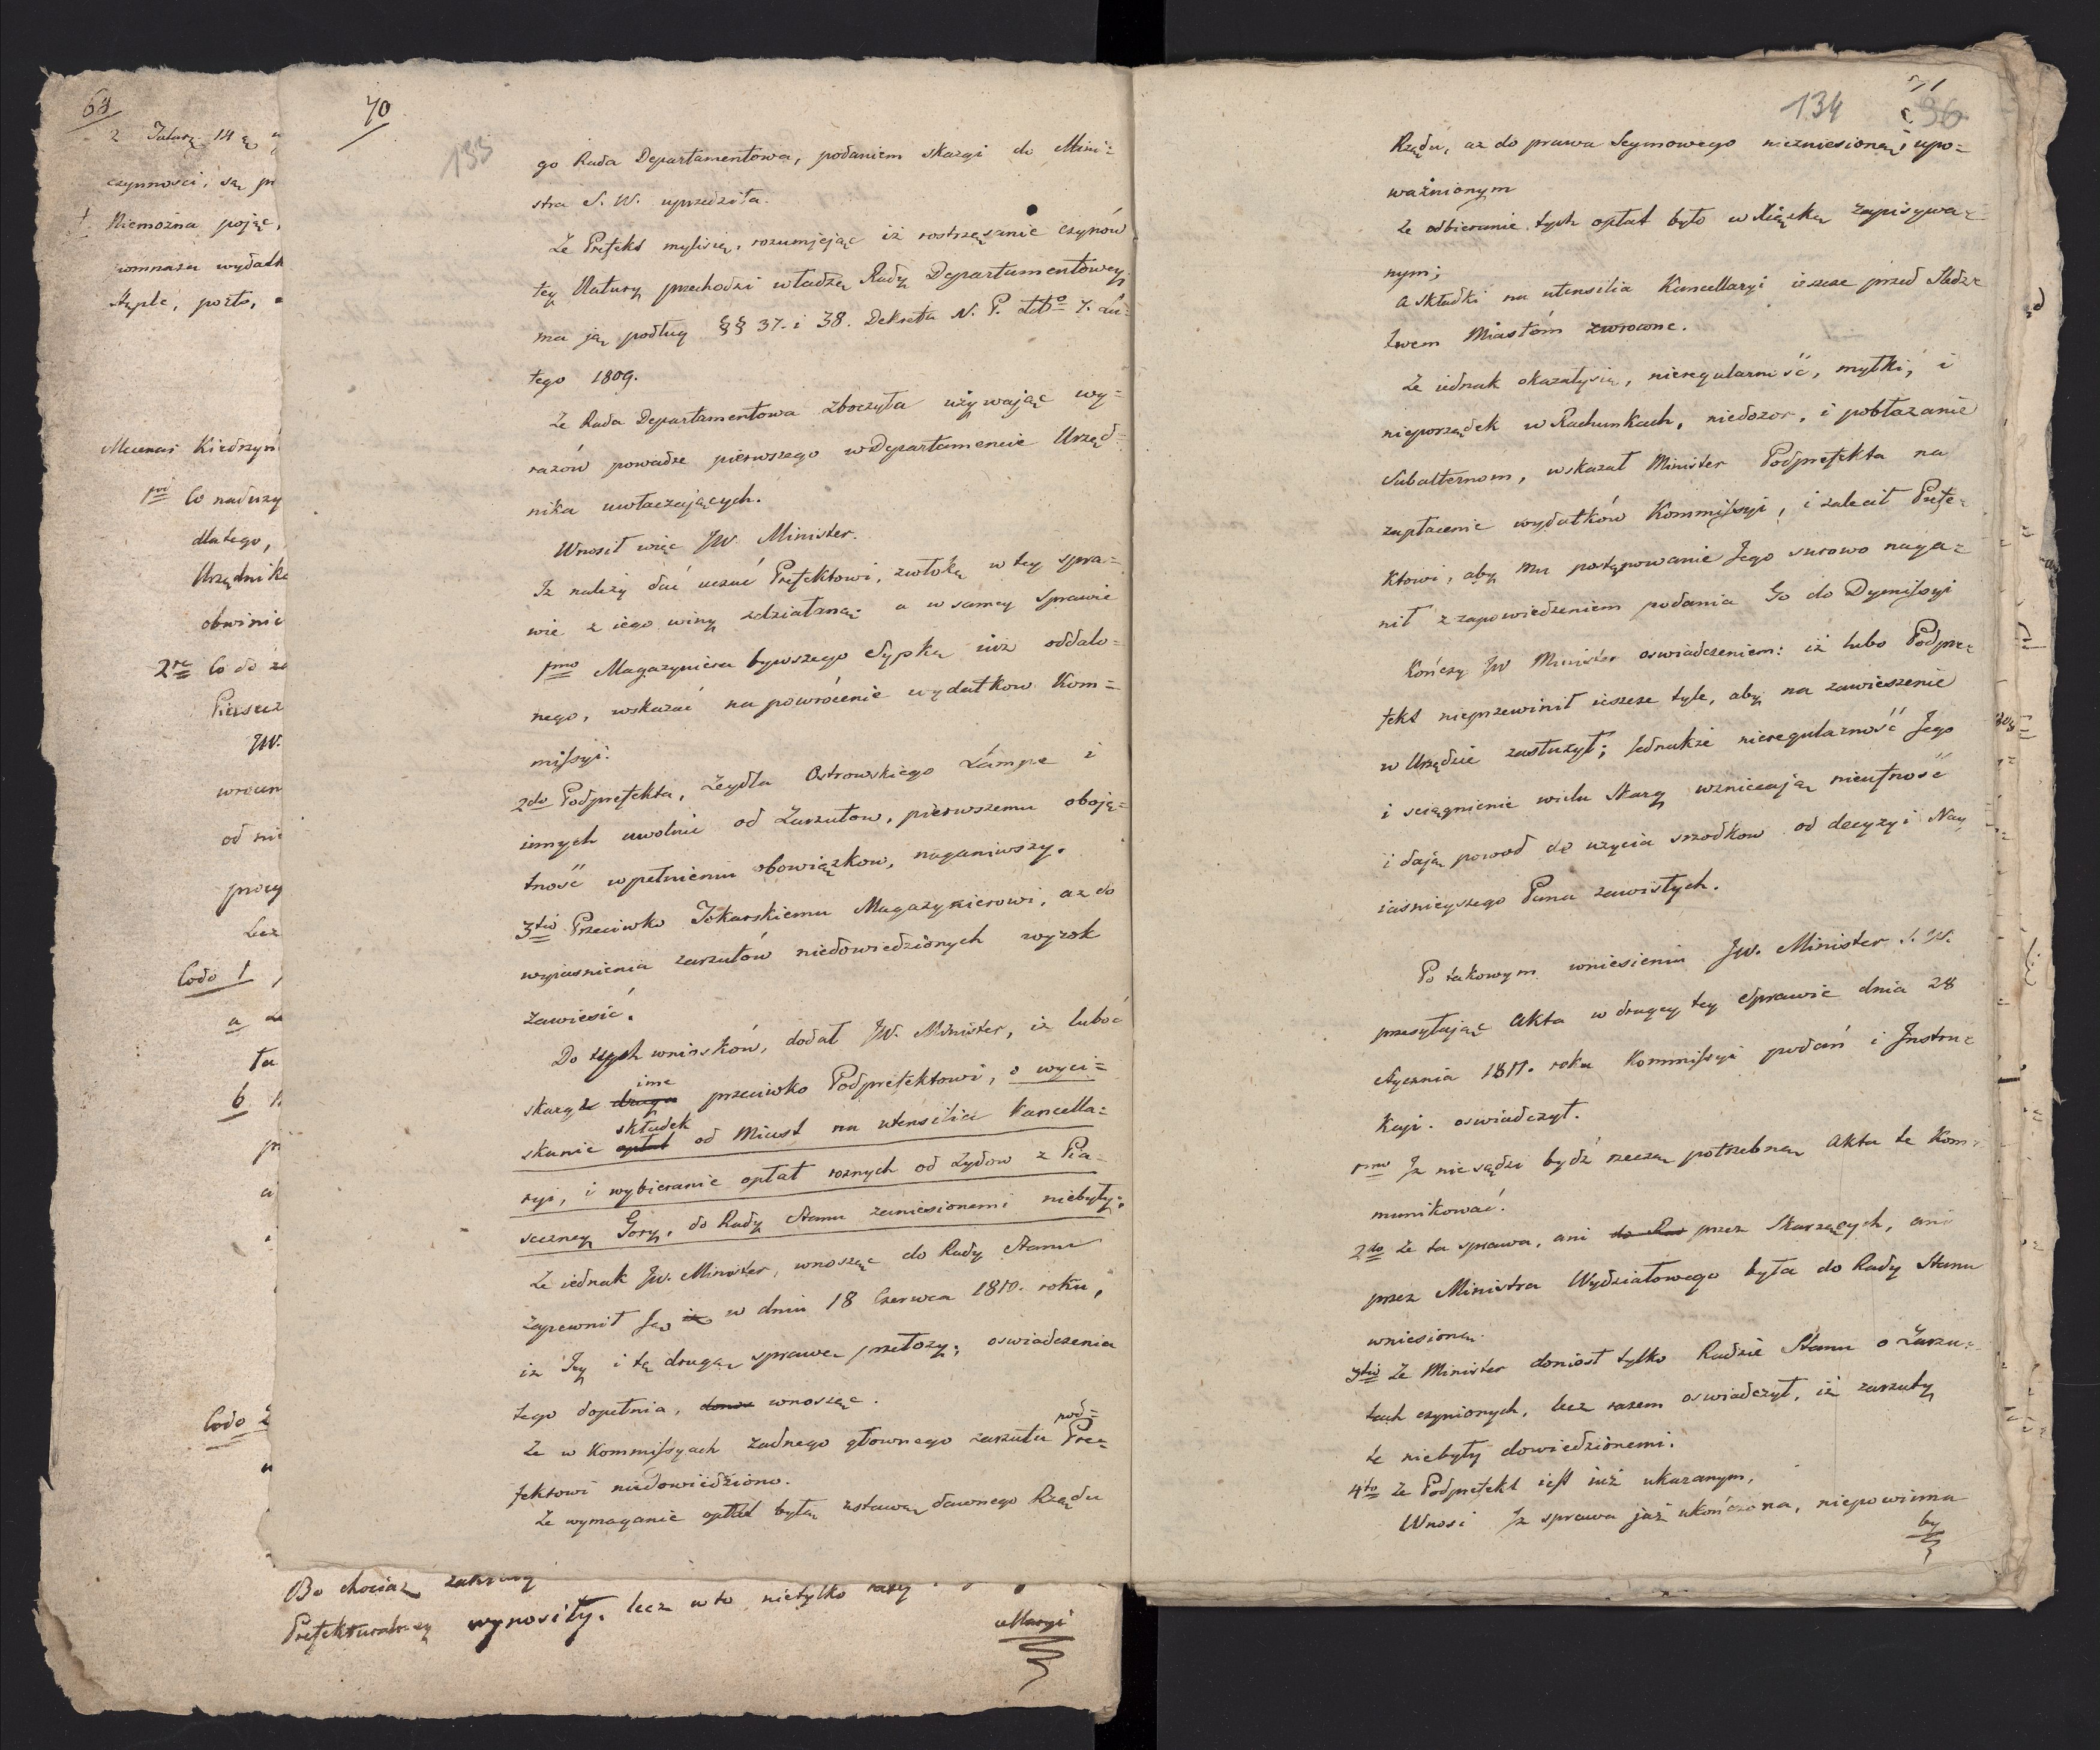 68
2
czynności, są
Niemożna pojąć,
pomnaża wydatk
Co naduży
dlatego,
Urzędnik
obwinie
2re Co do
JW.
od nie
Lecz
Codo 1
a
ta
b
Codo 2
70
133
go Rada Departamentowa, podaniem skargi do Mini=
stra S. W. uprzedziła.
Że Prefekt mylisię, rozumiejąc iż rostrzęsanie czynów
tey Natury przechodzi władzę Rady Departamentowey
ma ją podług §§ 37. i 38. Dekretu N. P. 7. Lu=
tego 1809.
Że Rada Departamentowa zboczyła używając wy=
razów powadze pierwszego w Departamencie Urzęd=
nika uwłaczających.
Wnosił więc JW. Minister.
Iż należy dać uczuć Prefektowi, zwłokę w tey spra=
wie z iego winy zdziałaną; a w samey Sprawie
1mo Magazyniera bywszego Sypkę iuż oddalo=
nego, wskazać na powrócenie wydatkow Kom=
missyi.
2do Podprefekta, Zeydla Ostrowskiego Lampe i
innych uwolnić od Zarzutow, pierwszemu oboję=
tność w pełnieniu obowiązkow, naganiwszy.
3tio Przeciwko Tokarskiemu Magazynierowi, aż do
wyiasnienia zarzutów niedowiedzionych wyrok
zawiesić.
Do tych wniosków, dodał JW. Minister, iż luboć
ime
skargi druga przeciwko Podprefektowi, o wyci=
składek
skanie opłat od Miast na utensilia Kancella=
ryi, i wybieranie opłat rożnych od Żydow z Pia=
seczney Gory, do Rady Stanu zaniesionemi niebyły,
Że iednak JW. Minister, wnosząc do Rady Stanu
zapewnił Ją iż w dniu 18 Czerwca 1810. roku,
iż Jey i tę drugą sprawę przełoży; oswiadczenia
tego dopełnia, wnosząc.
pod=
Że w Kommissyach żadnego głownego zarzutu Pre=
fektowi niedowiedziono.
Że wymaganie opłat było ustawą dawnego Rządu
Bo chociaż
Prefekturalney wynosiły. lecz w to nietylko
71
134
96
Rządu, aż do prawa Seymowego niezniesioną upo=
ważnionym
Że odbieranie tych opłat było w Xiążkę zapisywa=
nym;
a składki na utensilia Kancellaryi ieszcze przed Śledz=
twem Miastóm zwrocone.
Że iednak okazałysię, nieregularność, myłki, i
nieporządek w Rachunkach, niedozor, i pobłażanie
Subalternom, wskazał Minister Podprefekta na
zapłacenie wydatków Kommissyi, i zalecił Prefe=
ktowi, aby mu postępowanie Jego surowo naga=
nił z zapowiedzeniem podania Go do Dymissyi
Kończy JW Minister oswiadczeniem: iż lubo Podpre=
fekt nieprzewinił ieszcze tyle, aby na zawieszenie
w Urzędzie zasłużył; Jednakże nieregularność Jego
i sciągnienie wielu Skarg wzniecają nieufność
i dają powod do użycia srzodkow od decyzyi Nay
iaśnieyszego Pana zawisłych.
Po takowym wniesieniu JW. Minister S. W.
przesyłając Akta w drugey tey Sprawie dnia 28
Stycznia 1811. roku Kommissyi podań i Instru=
kcyi. oswiadczył.
1mo Iż nie sądzi bydź rzeczą potrzebną Akta te Kom=
munikować.
2do Że ta sprawa, ani do Rad przez Skarzących, ani
przez Ministra Wydziałowego była do Rady Stanu
wniesioną.
3tio Że Minister doniosł tylko Radzie Stanu o Zarzu=
tach czynionych, lecz razem oswiadczył, iż zarzuty
te niebyły dowiedzionemi.
4to Że Podprefekt iest iuż ukaranym,
Wnosi Iż sprawa już ukończona, niepowinna
by